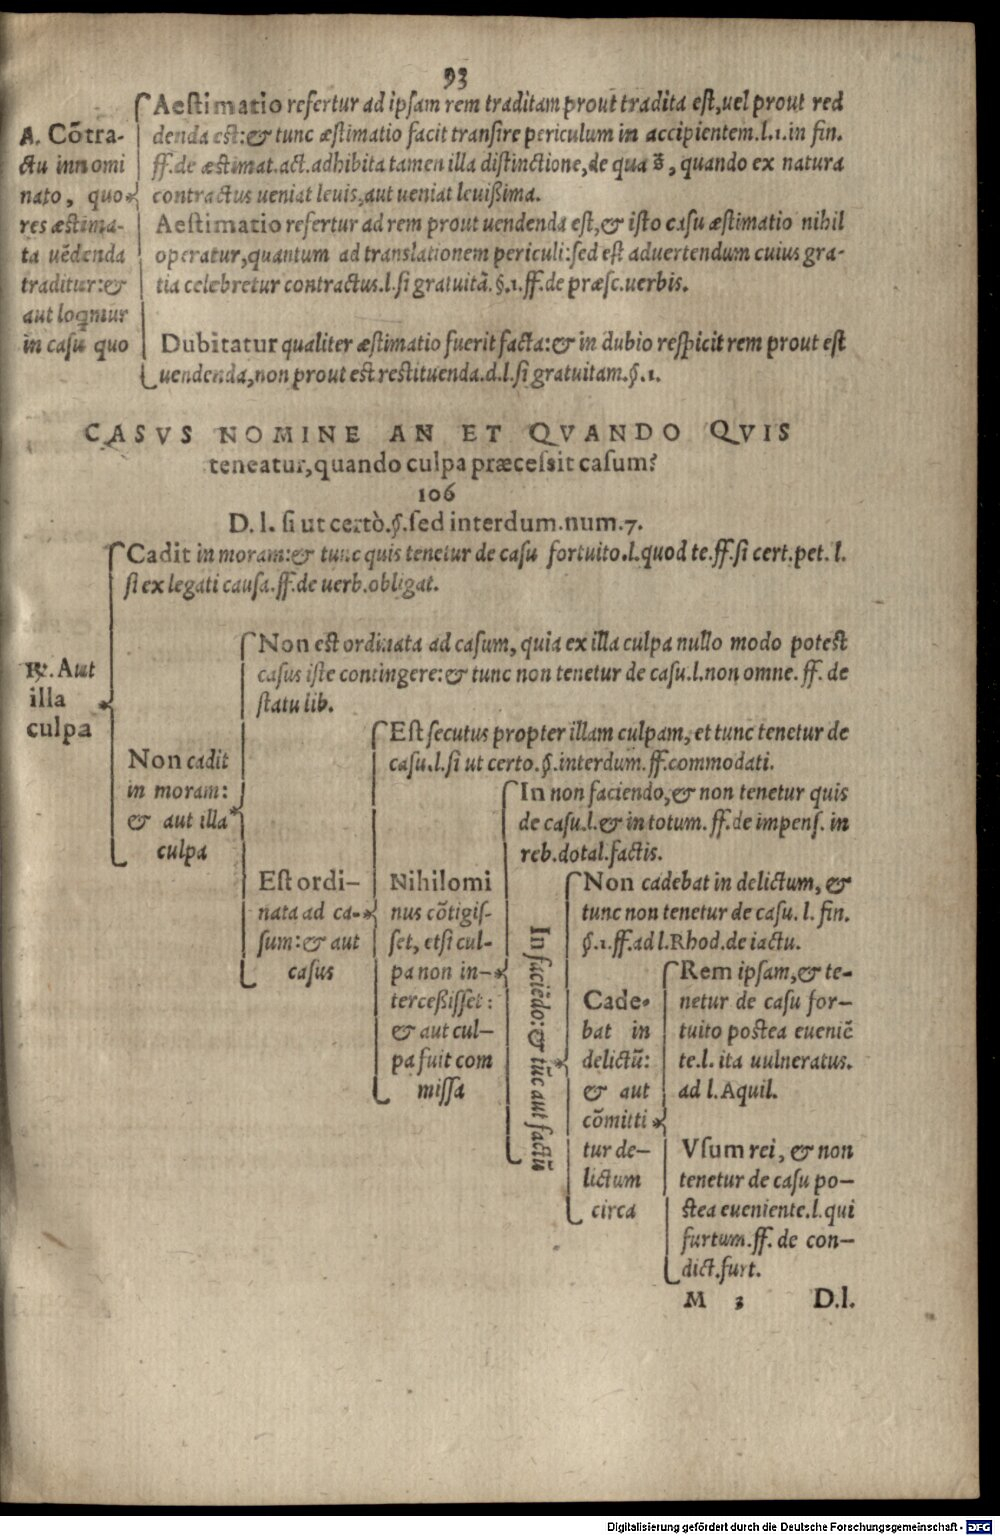 93
A. Cõtra-
ctu innomi
nato, quo
res æstima-
ta uẽdenda
traditur:&
aut loq̃mur
in casu quo
Aestimatio refertur ad ipsam rem traditam prout tradita est,uel prout red
denda est:& tunc æstimatio facit transire periculum in accipientem.l.1.in fin.
ff.de æstimat.act.adhibita tamen illa distinctione,de qua 3, quando ex natura
contractus ueniat leuis,aut ueniat leuißima.
Aestimatio refertur ad rem prout uendenda est,& isto casu æstimatio nihil
operatur,quantum ad translationem periculi:sed est aduertendum cuius gra-
tia celebretur contractus.l.si gratuitã.§.1.ff.de præsc.uerbis.
Dubitatur qualiter æstimatio fuerit facta:& in dubio respicit rem prout est
uendenda,non prout est restituenda.d.l.si gratuitam.§.1.
CASVS NOMINE AN ET QVANDO QVIS
teneatur,quando culpa præcessit casum?
106
D. l. si ut certò.§.sed interdum.num.7.
℟. Aut
illa
culpa
Cadit in moram:& tunc quis tenetur de casu fortuito.l.quod te.ff.si cert.pet. l.
si ex legati causa.ff.de uerb.obligat.
Non cadit
in moram:
& aut illa
culpa
Non est ordinata ad casum, quia ex illa culpa nullo modo potest
casus iste contingere:& tunc non tenetur de casu.l.non omne. ff. de
statu lib.
Est ordi-
nata ad ca-
sum:& aut
casus
Est secutus propter illam culpam, et tunc tenetur de
casu.l.si ut certo.§.interdum.ff.commodati.
Nihilomi
nus cõtigis-
set, etsi cul-
pa non in-
terceßisset:
& aut cul-
pa fuit com
missa
In non faciendo,& non tenetur quis
de casu.l.& in totum. ff.de impens. in
reb.dotal.factis.
In faciẽdo:& tũc aut factũ
Non cadebat in delictum, &
tunc non tenetur de casu. l. fin.
§.1.ff.ad l.Rhod.de iactu.
Cade-
bat in
delictũ:
& aut
cõmitti
tur de-
lictum
circa
Rem ipsam,& te-
netur de casu for-
tuito postea eueniẽ
te.l. ita uulneratus.
ad l.Aquil.
Vsum rei, & non
tenetur de casu po-
stea eueniente.l.qui
furtum.ff. de con-
dict.furt.
M 3 D.l.
Digitalisierung gefördert durch die Deutsche Forschungsgemeinschaft - DFG